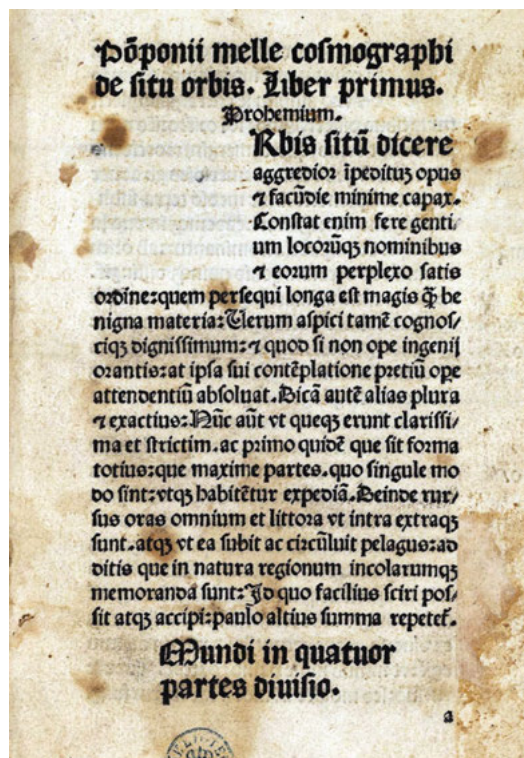 Põponii melle cosmographi
de situ orbis. Liber primus.
Prohemium.
Rbis sitũ dicere
aggredior ĩpedituꝫ opus
⁊ facũdie minime capax.
Constat enim fere genti
um locorũqꝫ nominibus
⁊ eorum perplexo satis
ordine: quem persequi longa est magis q̃ be
nigna materia: Uerum aspici tamẽ cognos/
ciqꝫ dignissimum: ⁊ quod si non ope ingenij
orantis: at ipsa sui contẽplatione pretiũ ope
attendentiũ absoluat. Dicã autẽ alias plura
⁊ exactius: Nũc aũt vt queqꝫ erunt clarissi/
ma et strictim. ac primo quidẽ que sit forma
totius: que maxime partes. quo singule mo
do sint: vtqꝫ habitẽtur expediã. Deinde rur/
sus oras omnium et littora vt intra extraqꝫ
sunt. atqꝫ vt ea subit ac circũluit pelagus: ad
ditis que in natura regionum incolarumqꝫ
memorandã sunt: Id quo facilius sciri pos/
sit atqꝫ accipi: paulo altius summa repetet̃.
Mundi in quatuor
partes diuisio.
a